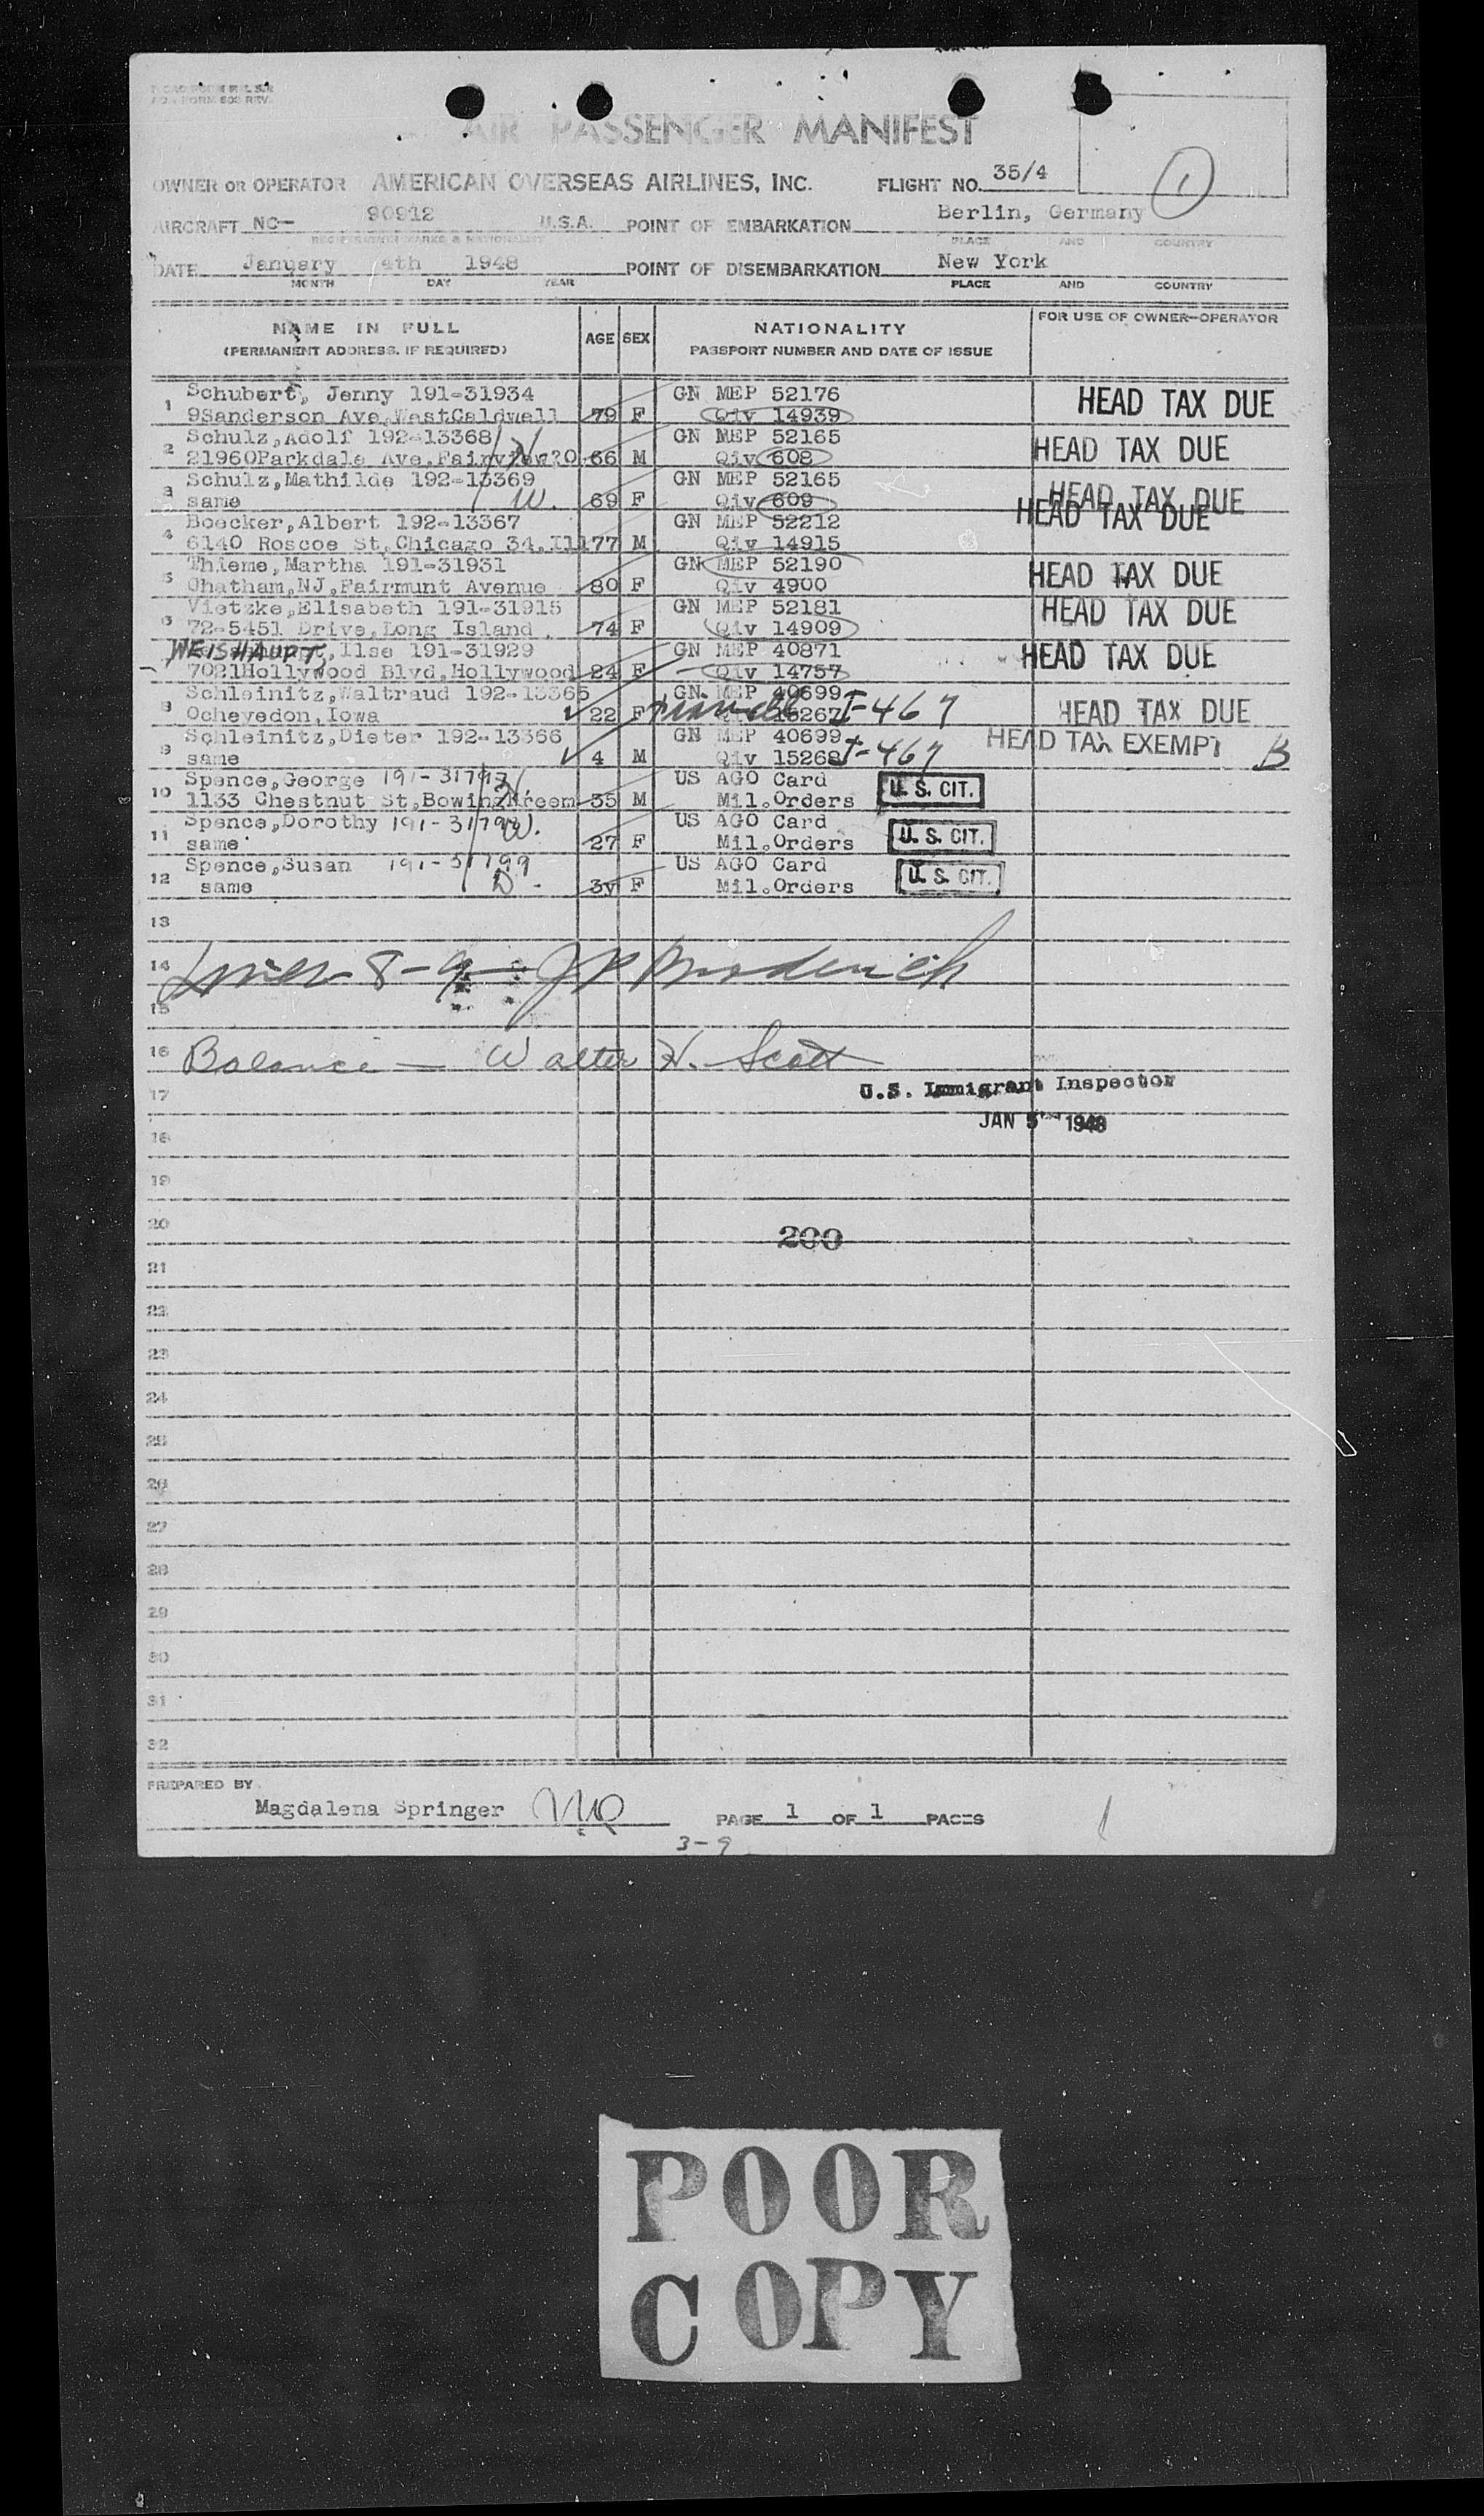 AIR PASSENGER MANIFEST
OWNER OR OPERATOR AMERICAN OVERSEAS AIRLINES, INC. FLIGHT NO. 35/4
1
AIRCRAFT NC- 90912 U.S.A. POINT OF EMBARKATION Berlin, Germany
PLACE AND COUNTRY
DATE January 4th 1948 POINT OF DISEMBARKATION New York
MONTH DAY YEAR PLACE AND COUNTRY
NAME IN FULL AGE SEX NATIONALITY FOR USE OF OWNER-OPERATOR
(PERMANENT ADDRESS, IF REQUIRED) PASSPORT NUMBER AND DATE OF ISSUE
1 Schubert, Jenny 191-31934 GN MEP 52176 HEAD TAX DUE
9Sanderson Ave,WestCaldwell 79 F Qiv 14939
2 Schulz,Adolf 192-13368 GN MEP 52165 HEAD TAX DUE
21960Parkdale Ave,Fairview20 66 M Qiv 608
3 Schulz,Mathilde 192-13369 GN MEP 52165 HEAD TAX DUE
same W. 69 F Qiv 609
4 Boecker,Albert 192-13367 GN MEP 52212 HEAD TAX DUE
6140 Roscoe St,Chicago 34,Ill 77 M Qiv 14915
5 Thieme,Martha 191-31931 GN MEP 52190 HEAD TAX DUE
Chatham,NJ,Fairmunt Avenue 80 F Qiv 4900
6 Vietzke,Elisabeth 191-31915 GN MEP 52181 HEAD TAX DUE
72-5451 Drive,Long Island 74 F Qiv 14909
WEISHAUPT,Ilse 191-31929 GN MEP 40871 HEAD TAX DUE
7021Hollywood Blvd,Hollywood 24 F Qiv 14757
8 Schleinitz,Waltraud 192-13365 GN MEP 40699
Ocheyedon,Iowa 22 F 15267 I-467 HEAD TAX DUE
9 Schleinitz,Dieter 192-13366 GN MEP 40699 HEAD TAX EXEMPT B
same 4 M Qiv 15268 I-467
10 Spence,George 191-31797 US AGO Card U.S. CIT.
1133 Chestnut St,BowingGreen 35 M Mil.Orders
11 Spence,Dorothy 191-31798 W. US AGO Card U.S. CIT.
same 27 F Mil.Orders
12 Spence,Susan 191-31799 US AGO Card U.S. CIT.
same D. 3y F Mil.Orders
13
14 8-9 JP Broderick
15
16 Balance - Walter H. Scott
17 U.S. Immigrant Inspector
JAN 5 1948
18
19
20 200
21
22
23
24
25
26
27
28
29
30
31
32
PREPARED BY
Magdalena Springer PAGE 1 OF 1 PAGES
3-9
POOR
COPY